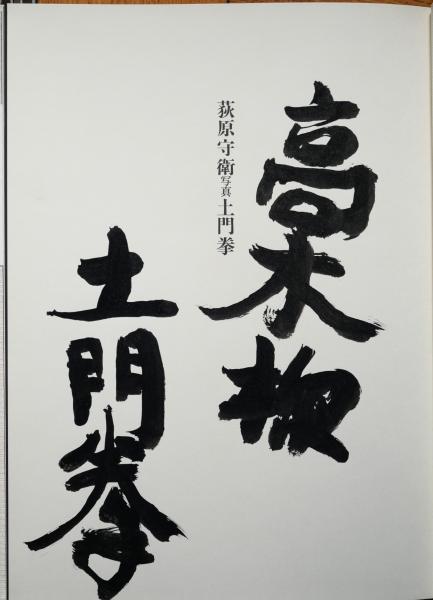 高木
荻原守衛 写真 土門拳
土門拳